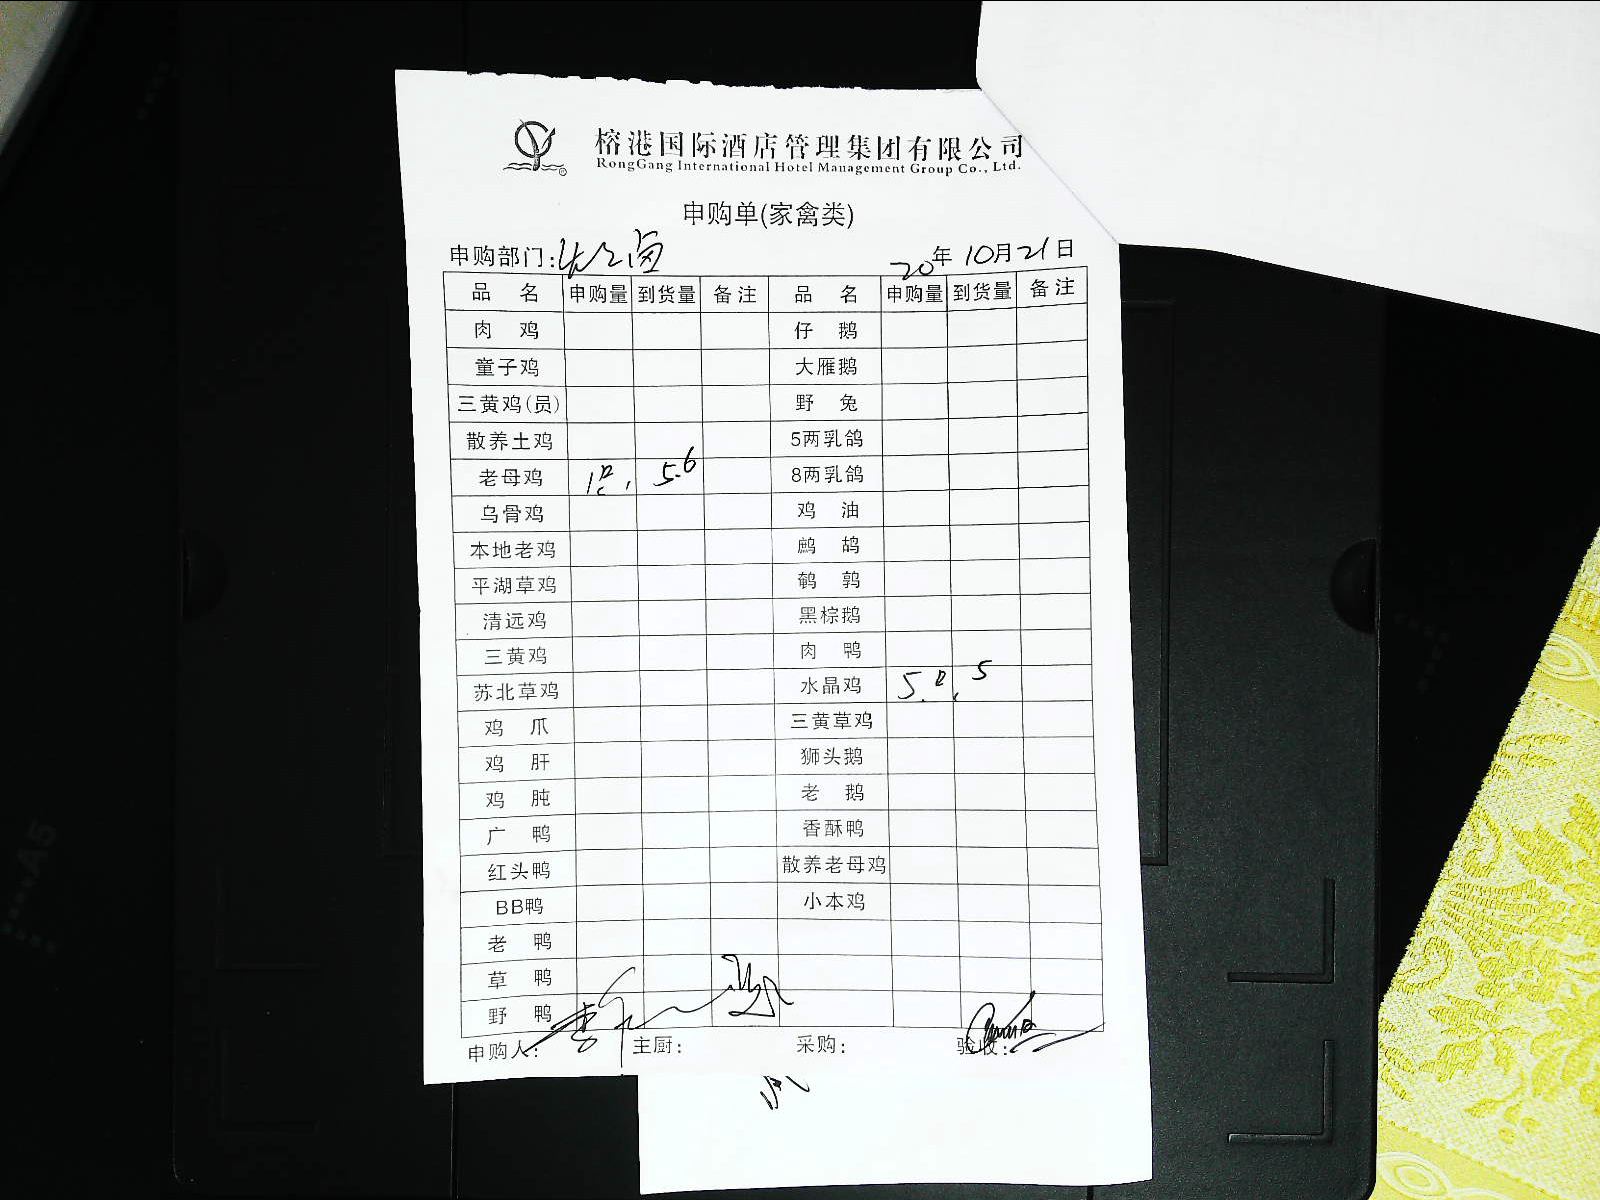 榕港国际酒店管理集团有限公司
RongGang International Hotel Management Group Co., Ltd.
申购单(家禽类)
申购部门: 20年10月21日
品名 申购量 到货量 备注 品名 申购量 到货量 备注
肉鸡 仔鹅
童子鸡 大雁鹅
三黄鸡(员) 野兔
散养土鸡 5两乳鸽
老母鸡 1只 5.6 8两乳鸽
乌骨鸡 鸡油
本地老鸡 鹧鸪
平湖草鸡 鹌鹑
清远鸡 黑棕鹅
三黄鸡 肉鸭
苏北草鸡 水晶鸡 5只 5
鸡爪 三黄草鸡
鸡肝 狮头鹅
鸡肫 老鹅
广鸭 香酥鸭
红头鸭 散养老母鸡
BB鸭 小本鸡
老鸭
草鸭
野鸭
申购人: 主厨: 采购: 验收:
A5